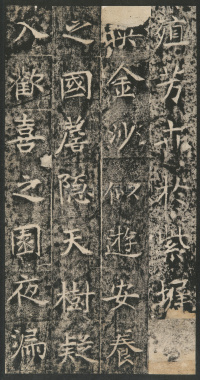 殖芳卉於紫墀
映金沙似遊安養
之國簷隱天樹疑
入歡喜之園夜漏